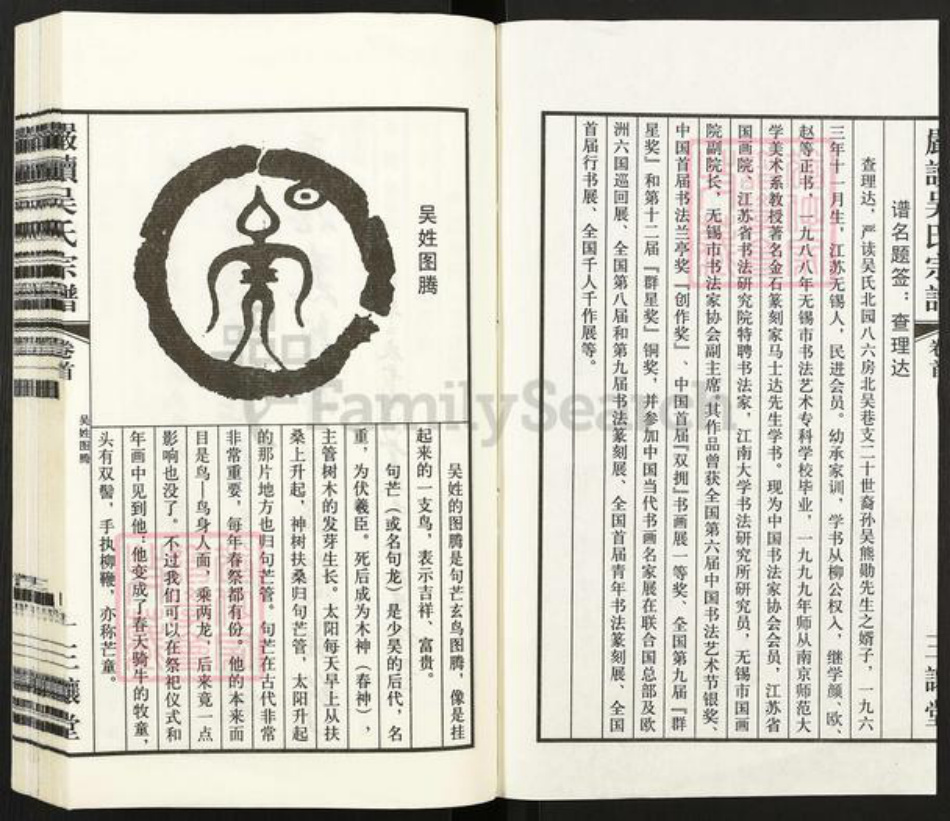 谱名题签：查理达
查理达，严读吴氏北园八六房北吴巷支二十世裔孙吴熊勋先生之婿子，一九六
三年十一月生，江苏无锡人，民进会员。幼承家训，学书从柳公权入，继学颜、欧、
赵等正书，一九八八年无锡市书法艺术专科学校毕业，一九九九年师从南京师范大
学美术系教授著名金石篆刻家马士达先生学书。现为中国书法家协会会员，江苏省
国画院、江苏省书法研究院特聘书法家，江南大学书法研究所研究员，无锡市国画
院副院长，无锡市书法家协会副主席，其作品曾获全国第六届中国书法艺术节银奖、
中国首届书法兰亭奖『创作奖』、中国首届『双拥』书画展一等奖、全国第九届『群
星奖』和第十二届『群星奖』铜奖，并参加中国当代书画名家展在联合国总部及欧
洲六国巡回展、全国第八届和第九届书法篆刻展、全国首届青年书法篆刻展、全国
首届行书展、全国千人千作展等。
三讓堂
吴姓图腾
吴姓的图腾是句芒玄鸟图腾，像是挂
起来的一支鸟，表示吉祥、富贵。
句芒（或名句龙）是少昊的后代，名
重，为伏羲臣。死后成为木神（春神），
主管树木的发芽生长。太阳每天早上从扶
桑上升起，神树扶桑归句芒管，太阳升起
的那片地方也归句芒管。句芒在古代非常
非常重要，每年春祭都有份。他的本来面
目是鸟—鸟身人面，乘两龙，后来竟一点
影响也没了。不过我们可以在祭祀仪式和
年画中见到他：他变成了春天骑牛的牧童，
头有双髻，手执柳鞭，亦称芒童
吴氏宗譜
卷首
吴姓图腾
三讓堂
FamilySearch